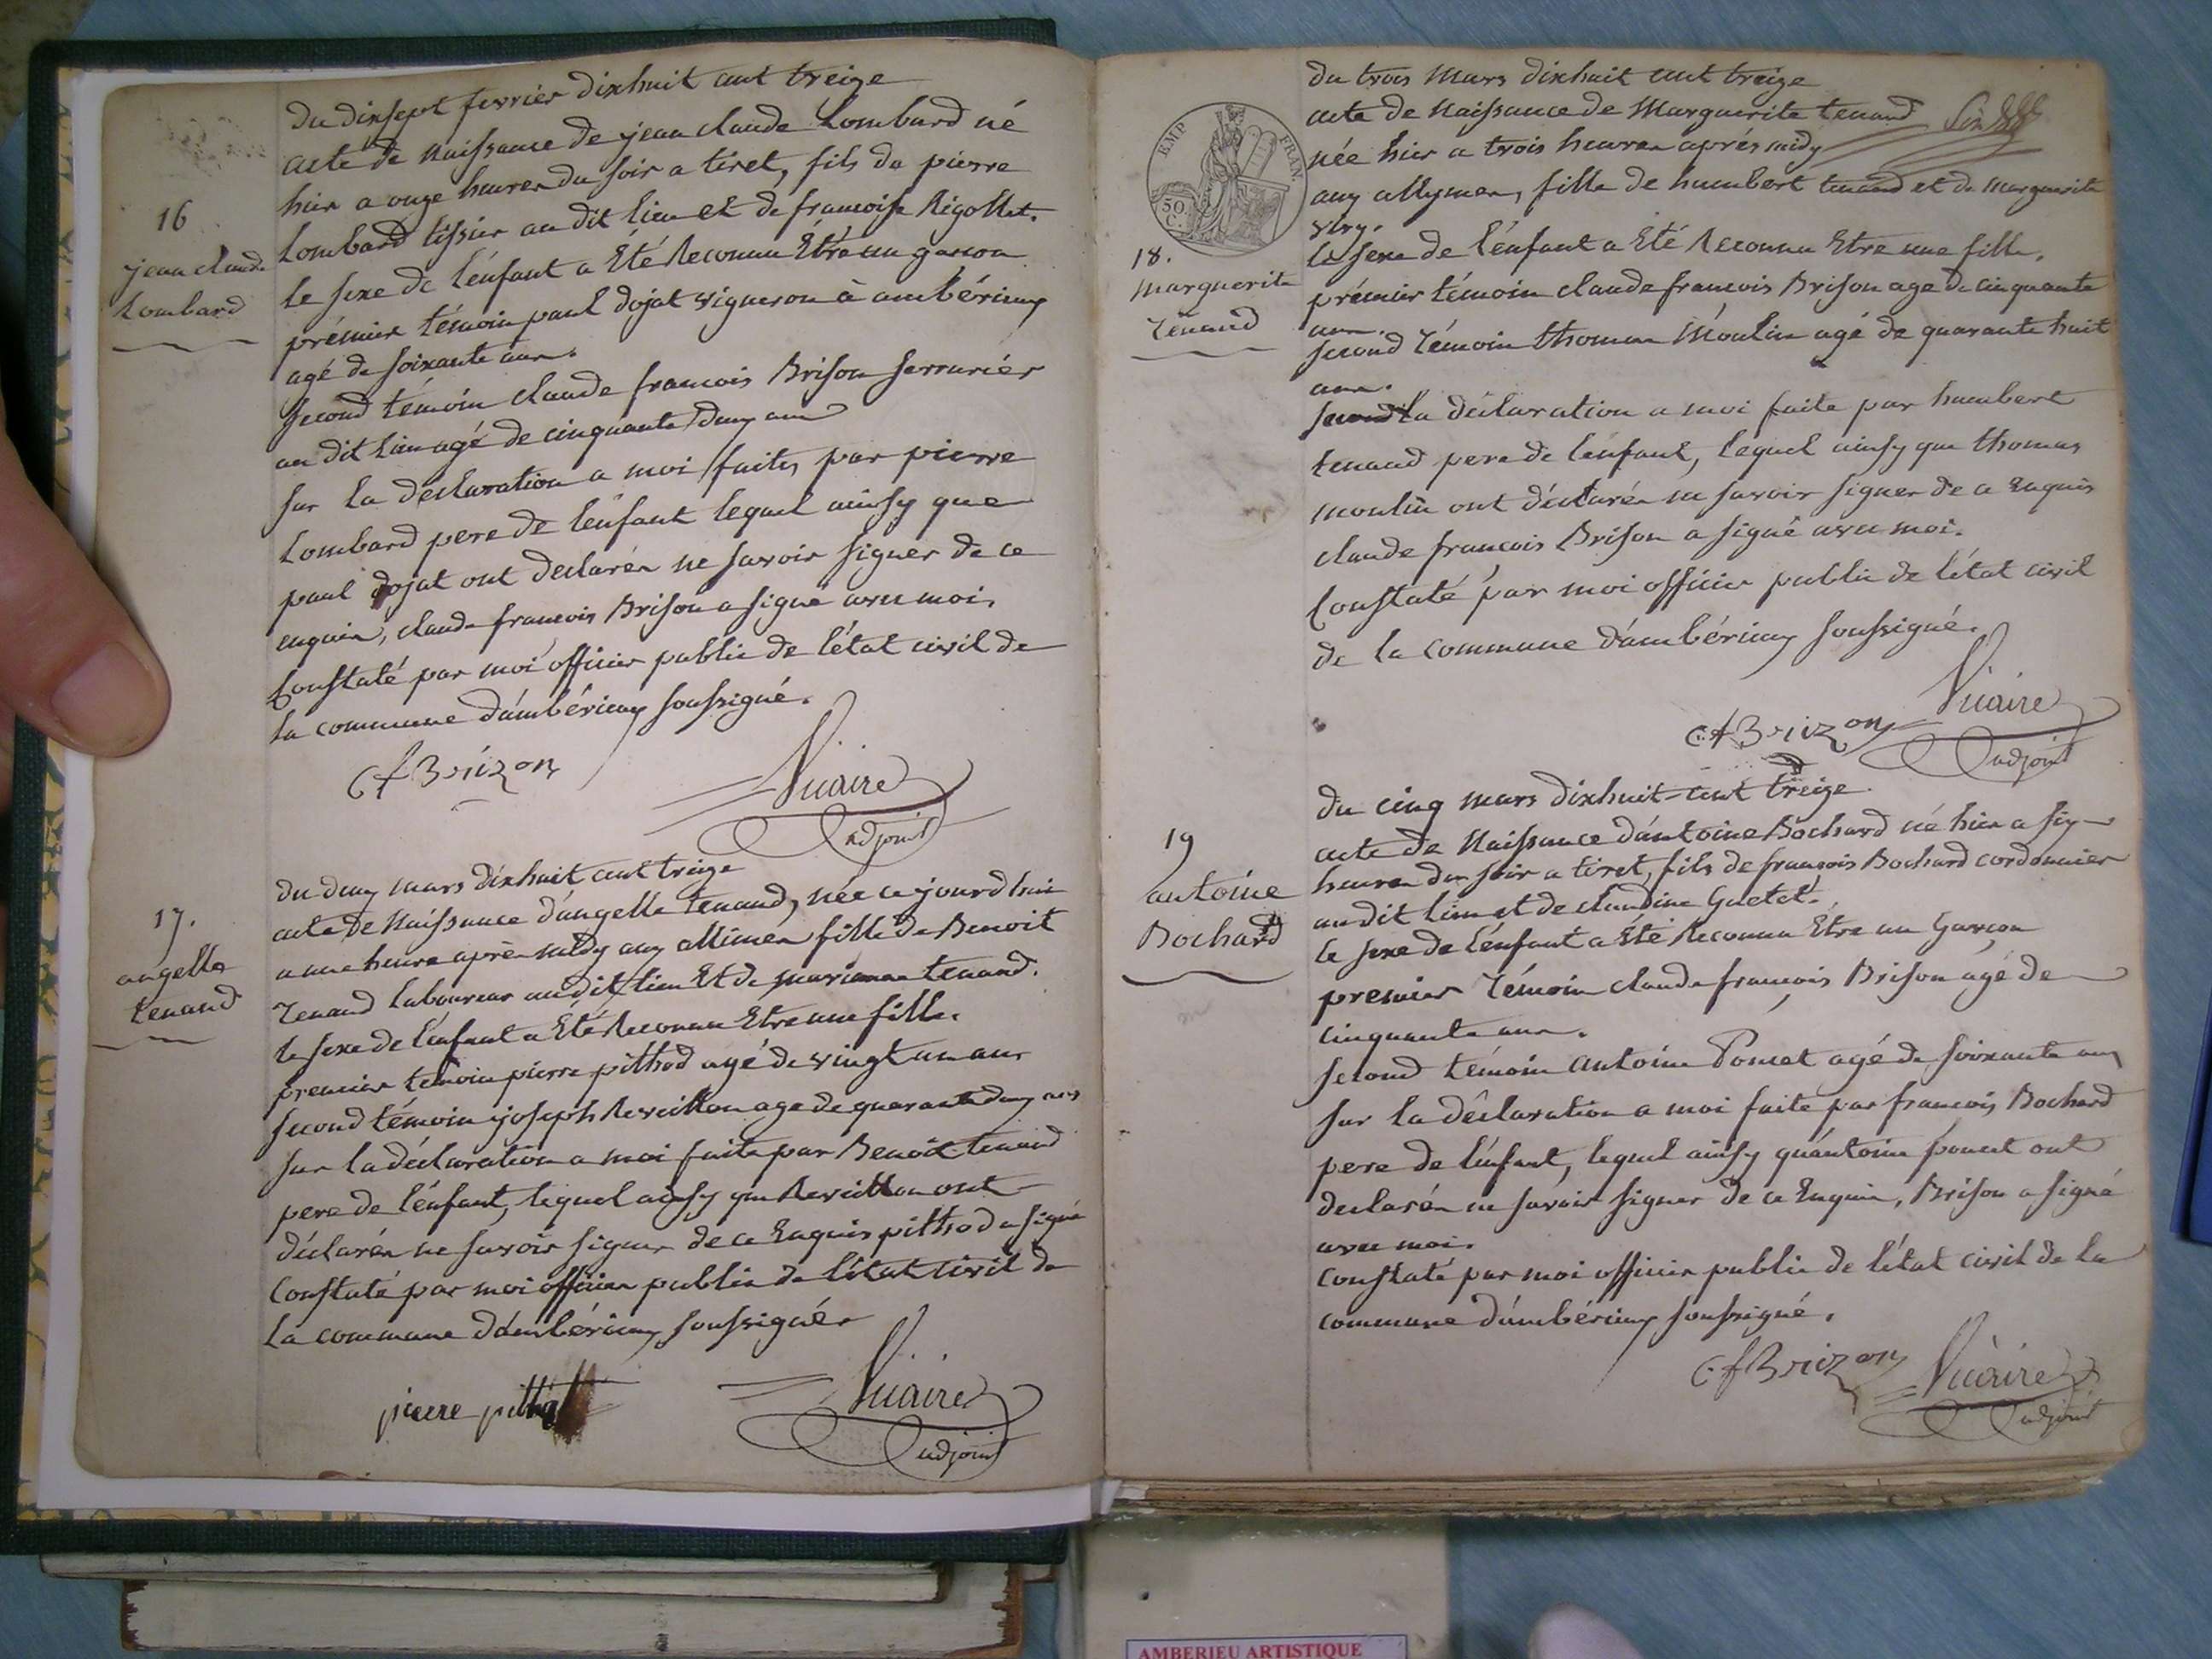 du dixsept fevrier dixhuit cent treize
acte de Naissance de jean claude Lombard né
hier a onze heures du soir a tiret, fils de pierre
Lombard tissier au dit lieu et de francoise Rigollet.
le sexe de l'énfant a Eté Reconnu Etre un garcon
prémier témoin paul dojat vigneron à ambérieux
agé de soixante ans.
second témoin claude francois Brison serruriér
au dit lieu agé de cinquante deux ans
sur la declaration a moi faite, par pierre
Lombard pere de l'enfant lequel ainsy que
paul dojat ont declarés ne savoir signer de ce
enquis, claude francois Brison a signé avec moi.
Constaté par moi officier public de l'état civil de
la commune d'ambérieux soussigné.
16
jean claude
Lombard
cf Brizon
Vicaire
adjoint
du deux mars dixhuit cent treize
acte de Naissance d'angella tenand, née ce jourd'hui
a une heure aprés midy aux allimes fille de Benoit
Tenand laboureur au dit lieu Et de marianne tenand.
le sexe de l'enfant a Eté Reconnu Etre une fille.
premier témoin pierre pithod agé de vingt un ans
second témoin joseph Reveillon age de quarante deux ans
sur la déclaration a moi faite par Benoit tenand
pere de l'énfant, lequel ainsy que Reveillon ont
déclarés ne savoir signer de ce Enquis pithod a signé
Constaté par moi officier public de l'état civil de
la commune d'ambérieux soussigné.
17.
angella
tenand
pierre pithod
Vicaire
adjoint
EMP. FRAN.
50 C.
du trois mars dixhuit cent treize
acte de Naissance de Marguerite tenand
née hier a trois heures aprés midy
aux allymes, fille de humbert tenand et de marguerite
Viry.
le sexe de l'énfant a Eté Reconnu Etre une fille.
prémier témoin claude francois Brison age de cinquante
ans.
second témoin thomas Moulin agé de quarante huit
ans.
la déclaration a moi faite par humbert
tenand pere de l'enfant, lequel ainsy que thomas
moulin ont déclarés ne savoir signer de ce Enquis
claude francois Brison a signé avec moi.
Constaté par moi officier public de l'état civil
de la commune d'ambérieux soussigné.
18.
marguerite
Tenand
cf Brizon
Vicaire
adjoint
du cinq mars dixhuit cent treize.
acte de Naissance d'antoine Bochard né hier a six
heures du soir a tiret, fils de francois Bochard cordonnier
au dit lieu et de claudine Guetet.
le sexe de l'énfant a Eté Reconnu Etre un Garcon
premier témoin claude francois Brison agé de
cinquante ans.
second témoin antoine Poncet agé de soixante ans
sur la déclaration a moi faite par francois Bochard
pere de l'enfant, lequel ainsy qu'antoine poncet ont
declarés ne savoir signer de ce Enquis, Brison a signé
avec moi.
constaté par moi officier public de l'état civil de la
commune d'ambérieux soussigné.
19
antoine
Bochard
cf Brizon
Vicaire
adjoint
AMBERIEU ARTISTIQUE